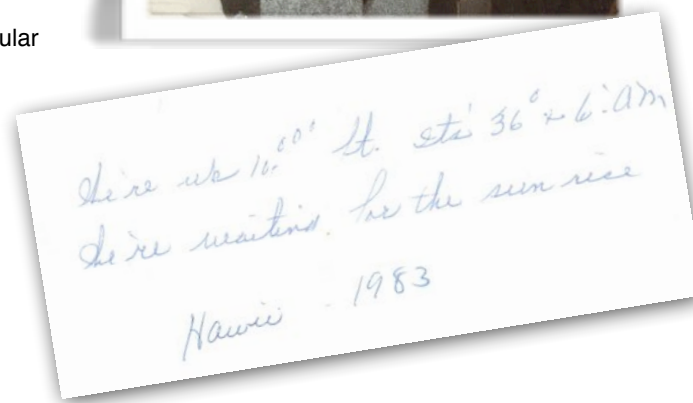 ular
We're up 10,000 ft. Its' 36° & 6: am
We're waiting. for the sun rise
Hawii - 1983